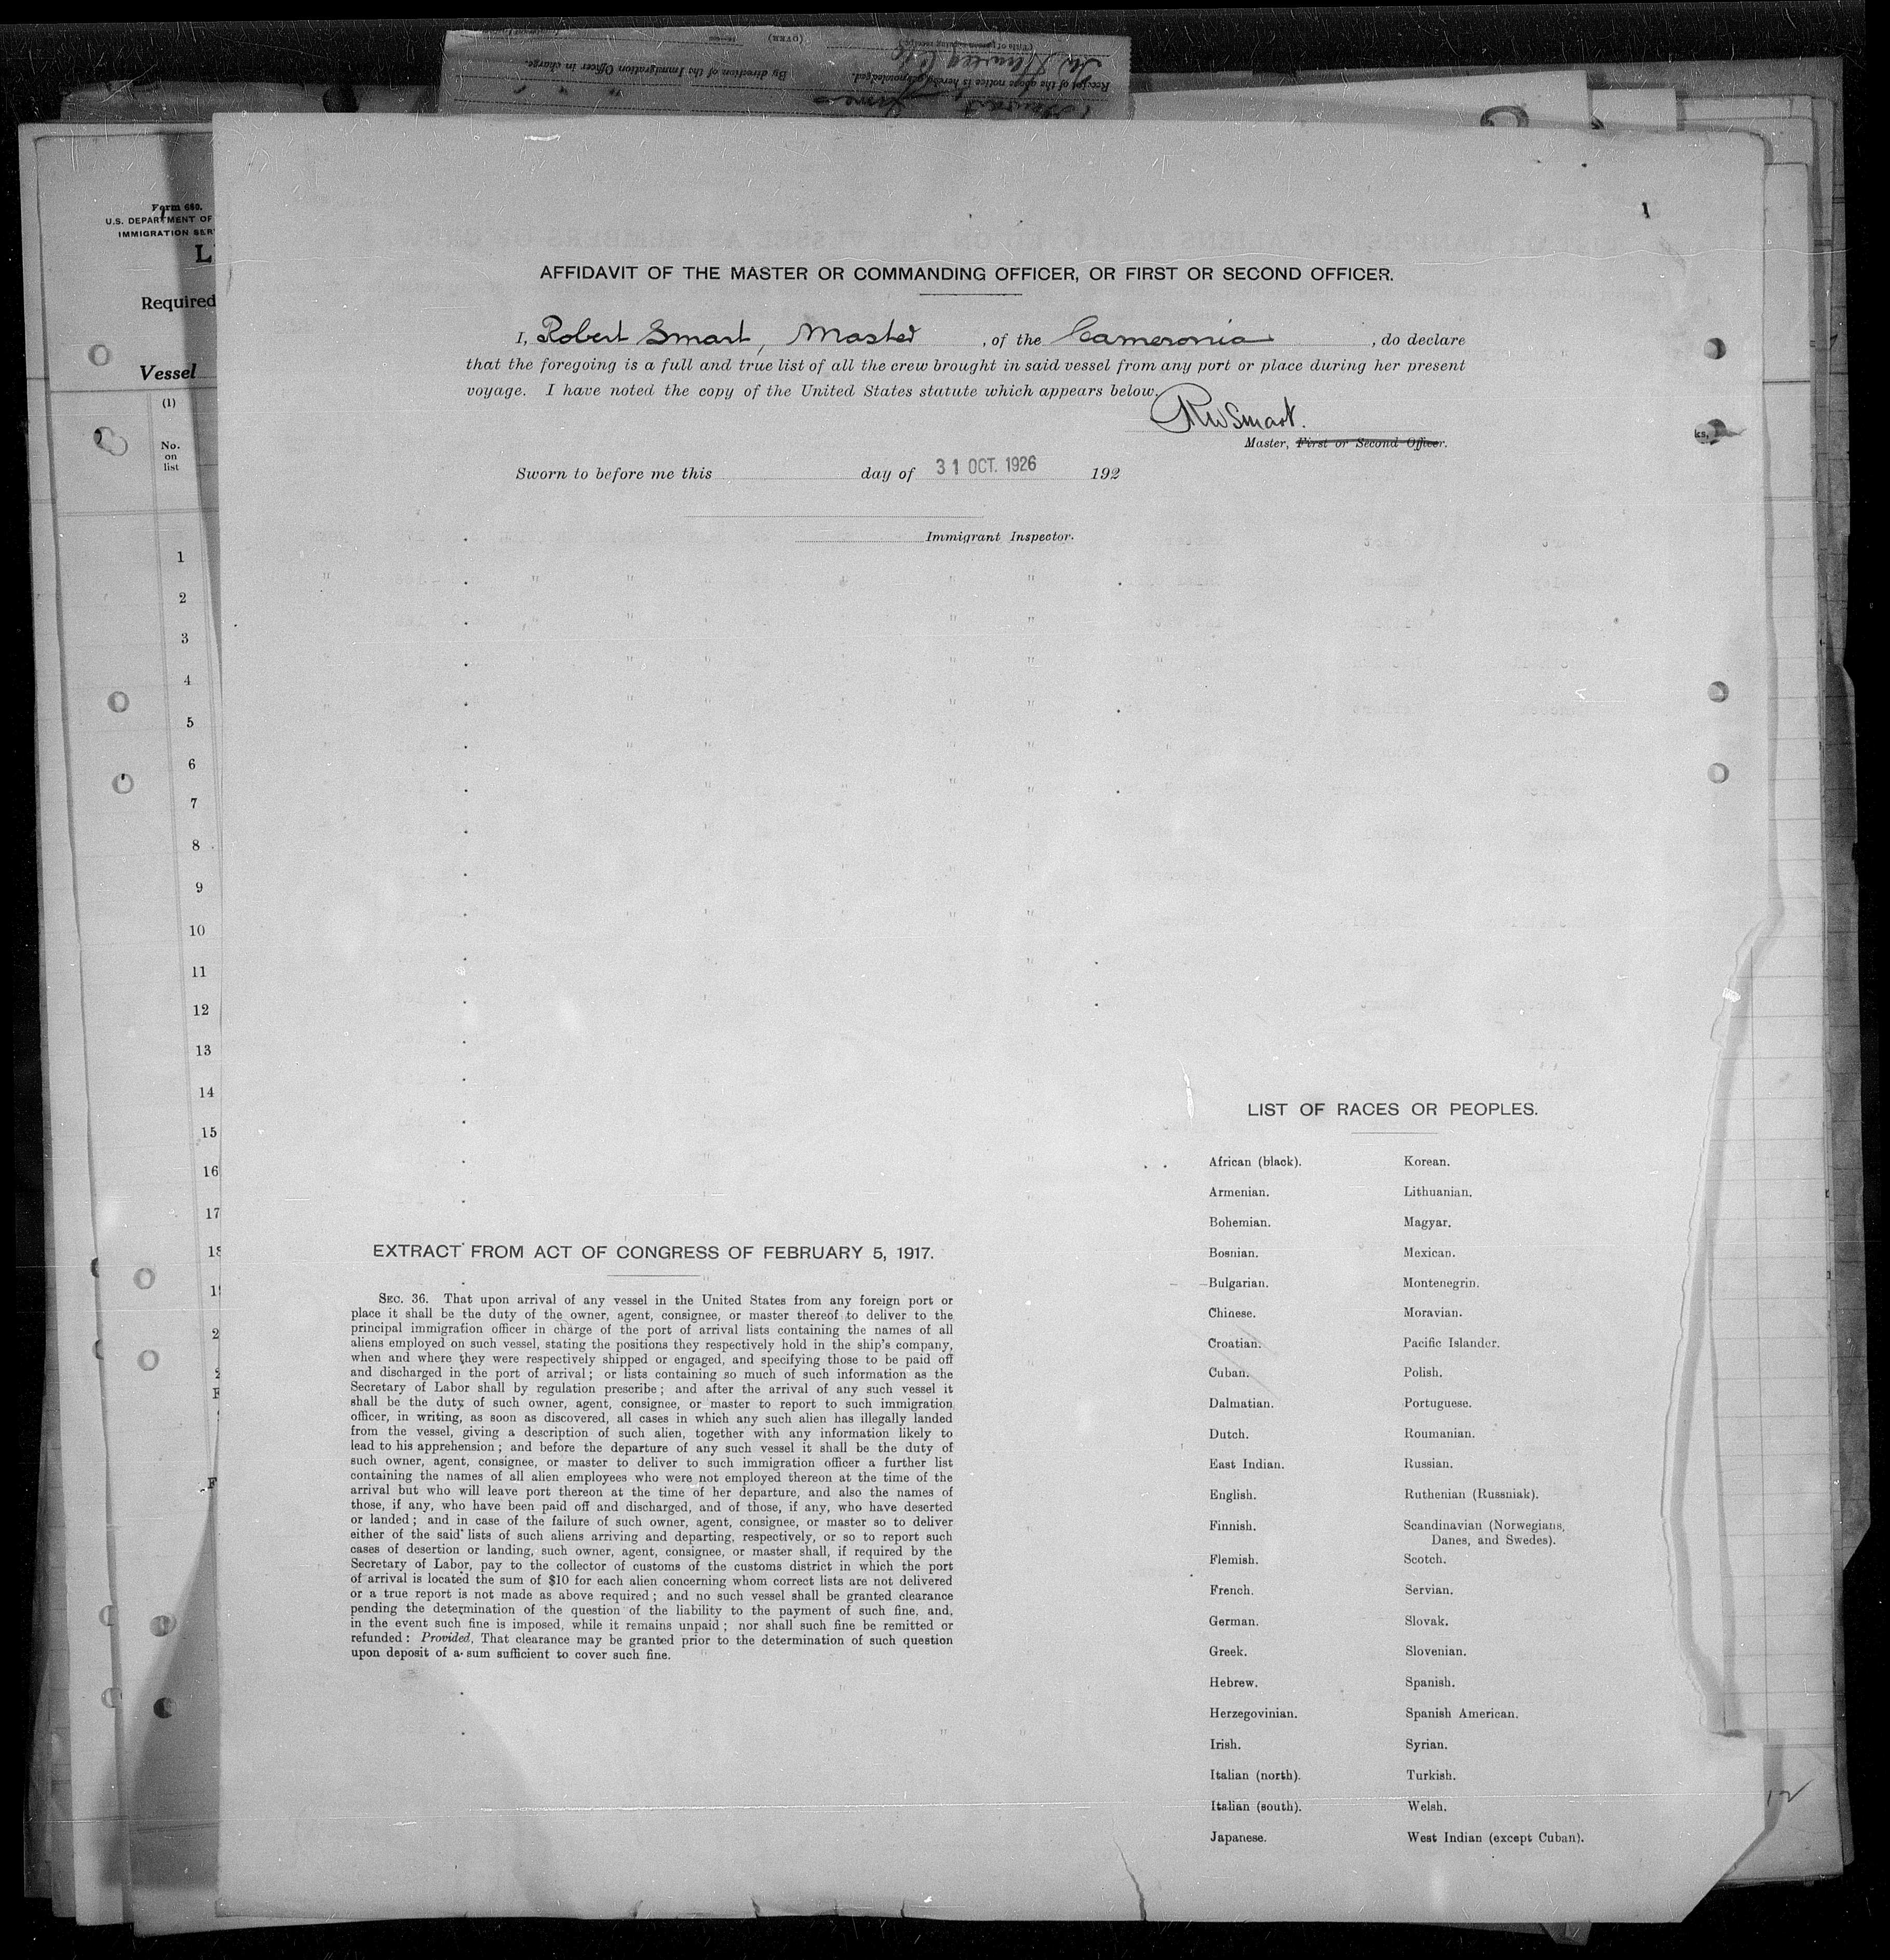 (OVER)
(Title of person signing receipt)
By direction of the Immigration Officer in charge.
Receipt of the above notice is hereby acknowledged.
Form 689.
U.S. DEPARTMENT OF
IMMIGRATION SER
L
Required
Vessel
(1)
No.
on
list
1
2
3
4
5
6
7
8
9
10
11
12
13
14
15
16
17
ks,
1
AFFIDAVIT OF THE MASTER OR COMMANDING OFFICER, OR FIRST OR SECOND OFFICER.
I, Robert Smart, Master, of the Cameronia, do declare
that the foregoing is a full and true list of all the crew brought in said vessel from any port or place during her present
voyage. I have noted the copy of the United States statute which appears below.
RWSmart.
Master, First or Second Officer.
Sworn to before me this day of 31 OCT. 1926 192
Immigrant Inspector.
EXTRACT FROM ACT OF CONGRESS OF FEBRUARY 5, 1917.
SEC. 36. That upon arrival of any vessel in the United States from any foreign port or
place it shall be the duty of the owner, agent, consignee, or master thereof to deliver to the
principal immigration officer in charge of the port of arrival lists containing the names of all
aliens employed on such vessel, stating the positions they respectively hold in the ship's company,
when and where they were respectively shipped or engaged, and specifying those to be paid off
and discharged in the port of arrival; or lists containing so much of such information as the
Secretary of Labor shall by regulation prescribe; and after the arrival of any such vessel it
shall be the duty of such owner, agent, consignee, or master to report to such immigration
officer, in writing, as soon as discovered, all cases in which any such alien has illegally landed
from the vessel, giving a description of such alien, together with any information likely to
lead to his apprehension; and before the departure of any such vessel it shall be the duty of
such owner, agent, consignee, or master to deliver to such immigration officer a further list
containing the names of all alien employees who were not employed thereon at the time of the
arrival but who will leave port thereon at the time of her departure, and also the names of
those, if any, who have been paid off and discharged, and of those, if any, who have deserted
or landed; and in case of the failure of such owner, agent, consignee, or master so to deliver
either of the said lists of such aliens arriving and departing, respectively, or so to report such
cases of desertion or landing, such owner, agent, consignee, or master shall, if required by the
Secretary of Labor, pay to the collector of customs of the customs district in which the port
of arrival is located the sum of $10 for each alien concerning whom correct lists are not delivered
or a true report is not made as above required; and no such vessel shall be granted clearance
pending the determination of the question of the liability to the payment of such fine, and,
in the event such fine is imposed, while it remains unpaid; nor shall such fine be remitted or
refunded: Provided, That clearance may be granted prior to the determination of such question
upon deposit of a sum sufficient to cover such fine.
LIST OF RACES OR PEOPLES.
African (black). Korean.
Armenian. Lithuanian.
Bohemian. Magyar.
Bosnian. Mexican.
Bulgarian. Montenegrin.
Chinese. Moravian.
Croatian. Pacific Islander.
Cuban. Polish.
Dalmatian. Portuguese.
Dutch. Roumanian.
East Indian. Russian.
English. Ruthenian (Russniak).
Finnish. Scandinavian (Norwegians,
Danes, and Swedes).
Flemish. Scotch.
French. Servian.
German. Slovak.
Greek. Slovenian.
Hebrew. Spanish.
Herzegovinian. Spanish American.
Irish. Syrian.
Italian (north). Turkish.
Italian (south). Welsh.
Japanese. West Indian (except Cuban).
12